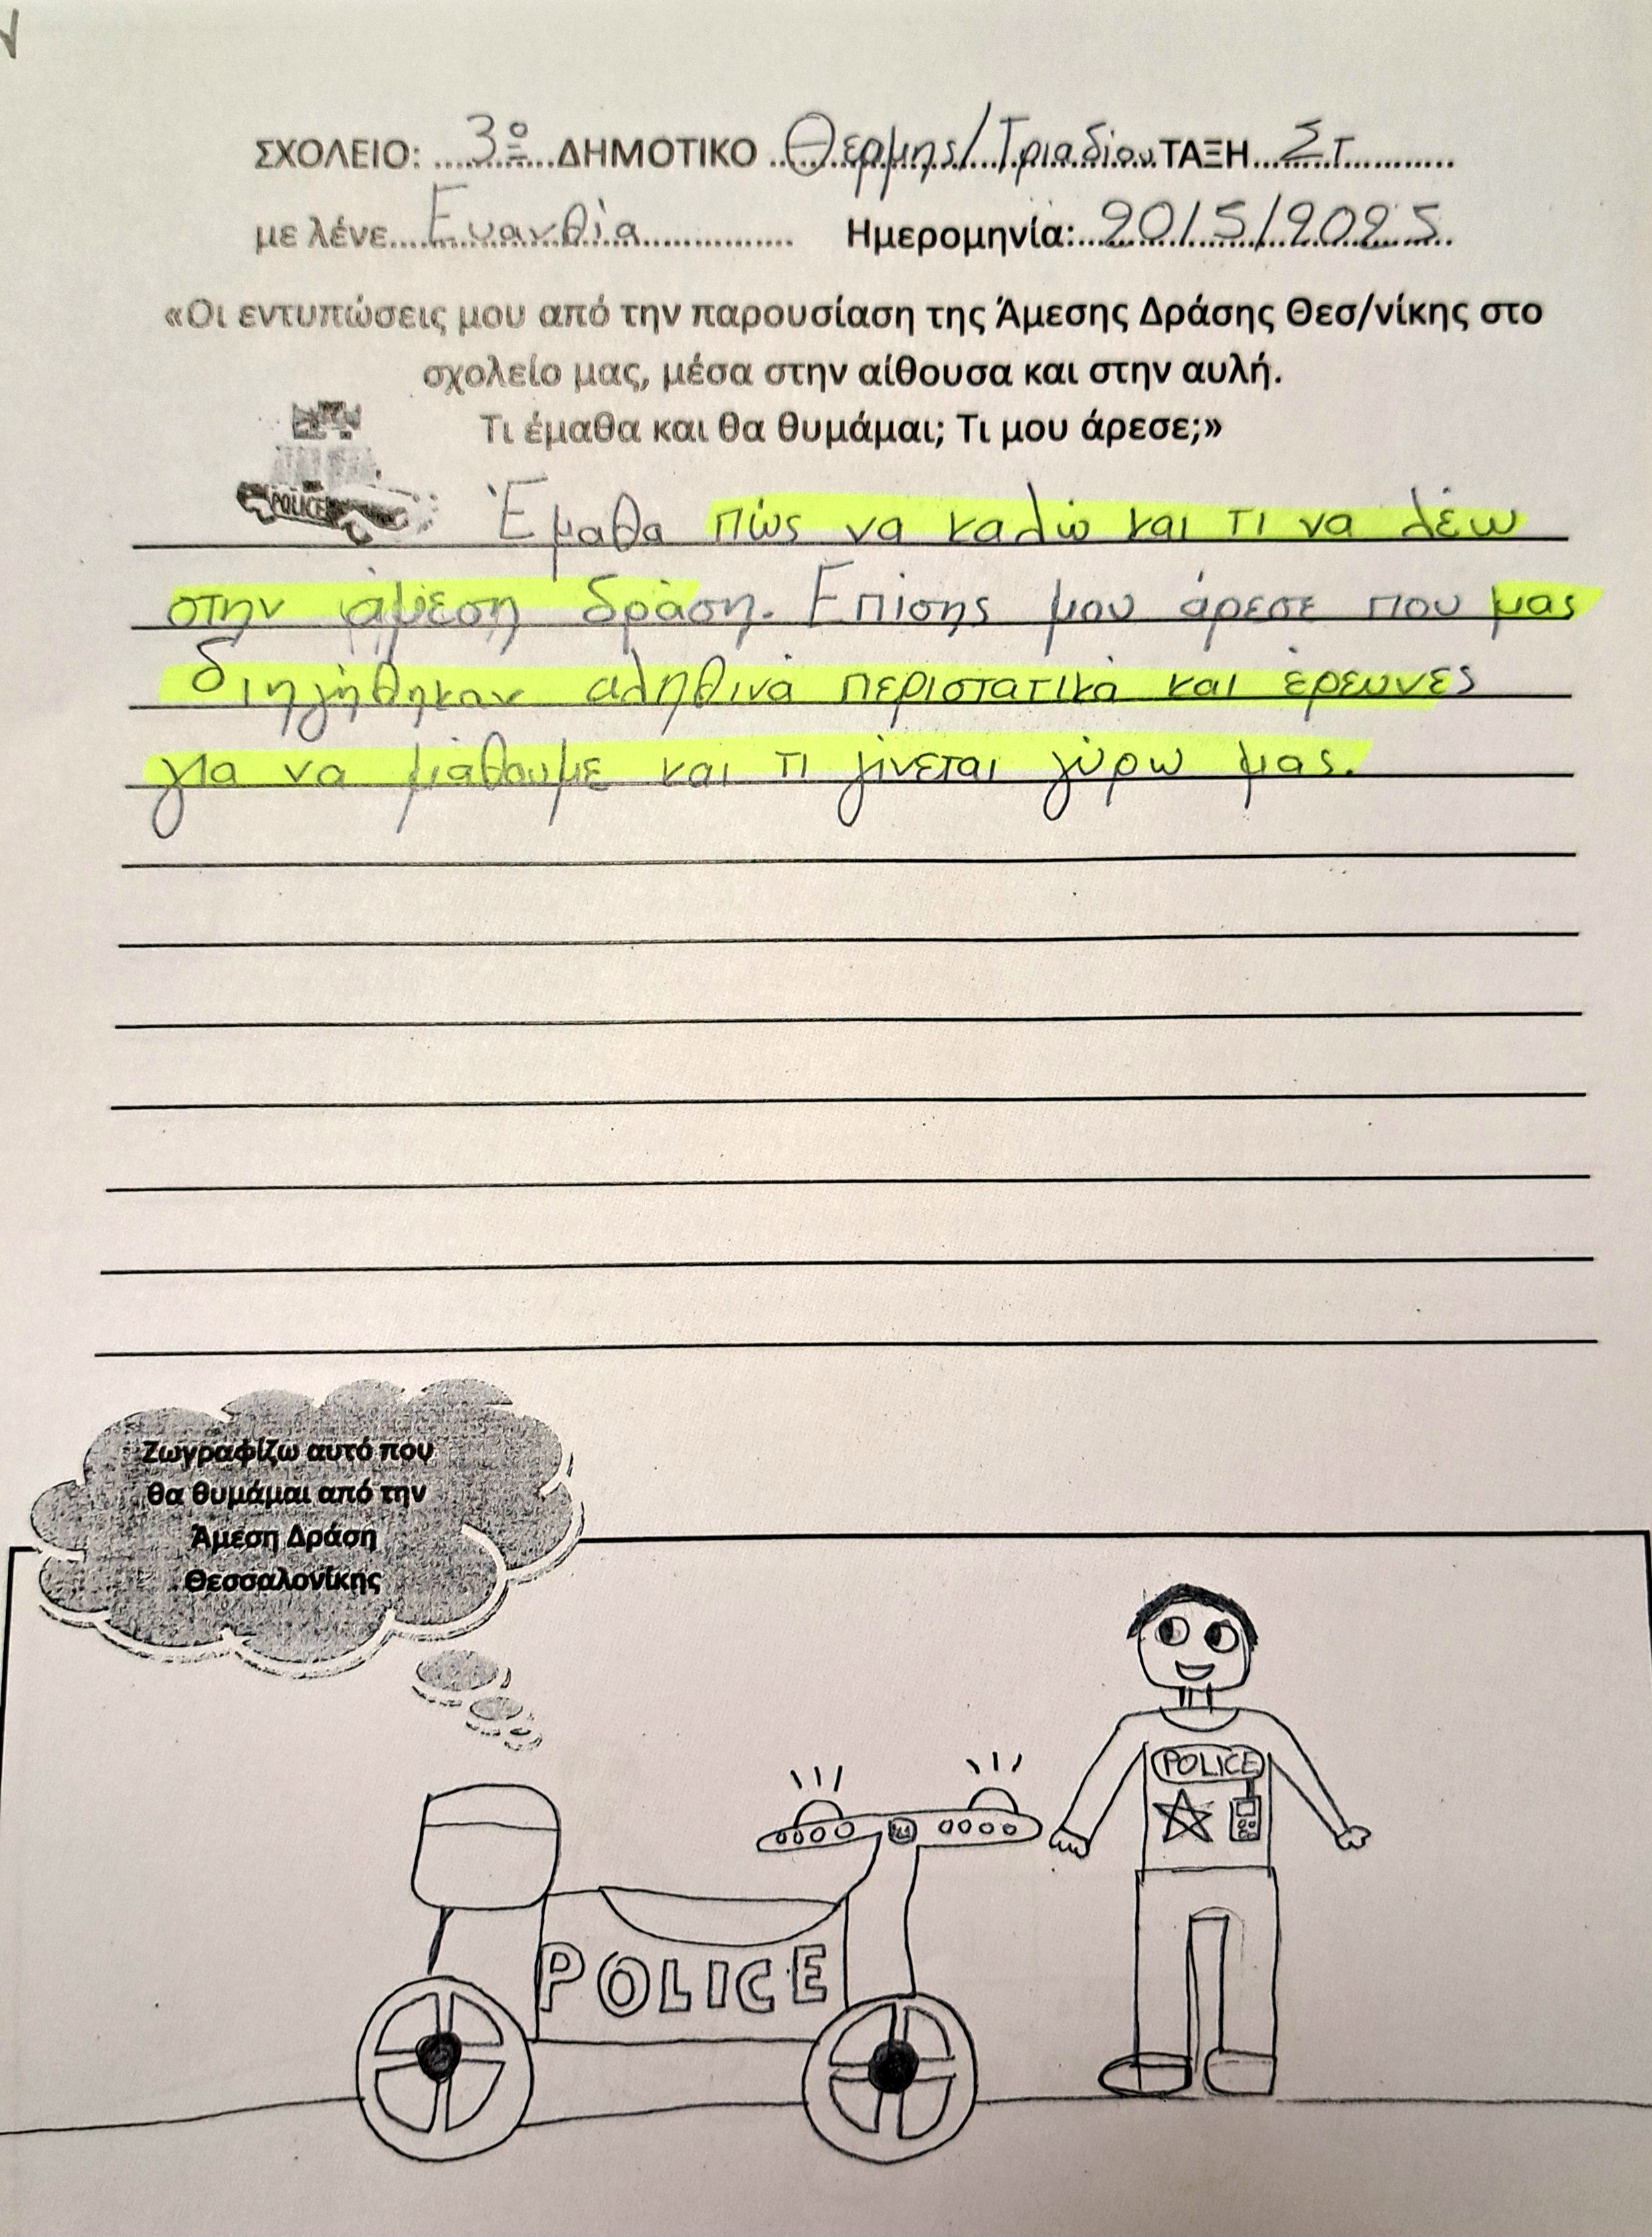 ΣΧΟΛΕΙΟ: 3ο ΔΗΜΟΤΙΚΟ Θέρμης/Τριαδίου ΤΑΞΗ Στ
με λένε Ευανθία Ημερομηνία: 20/5/2025
«Οι εντυπώσεις μου από την παρουσίαση της Άμεσης Δράσης Θεσ/νίκης στο
σχολείο μας, μέσα στην αίθουσα και στην αυλή.
Τι έμαθα και θα θυμάμαι; Τι μου άρεσε;»
POLICE
Έμαθα πώς να καλώ και τι να λέω
στην άμεση δράση. Επίσης μου άρεσε που μας
διηγήθηκαν αληθινά περιστατικά και έρευνες
για να μάθουμε και τι γίνεται γύρω μας.
Ζωγραφίζω αυτό που
θα θυμάμαι από την
Άμεση Δράση
Θεσσαλονίκης
POLICE
POLICE